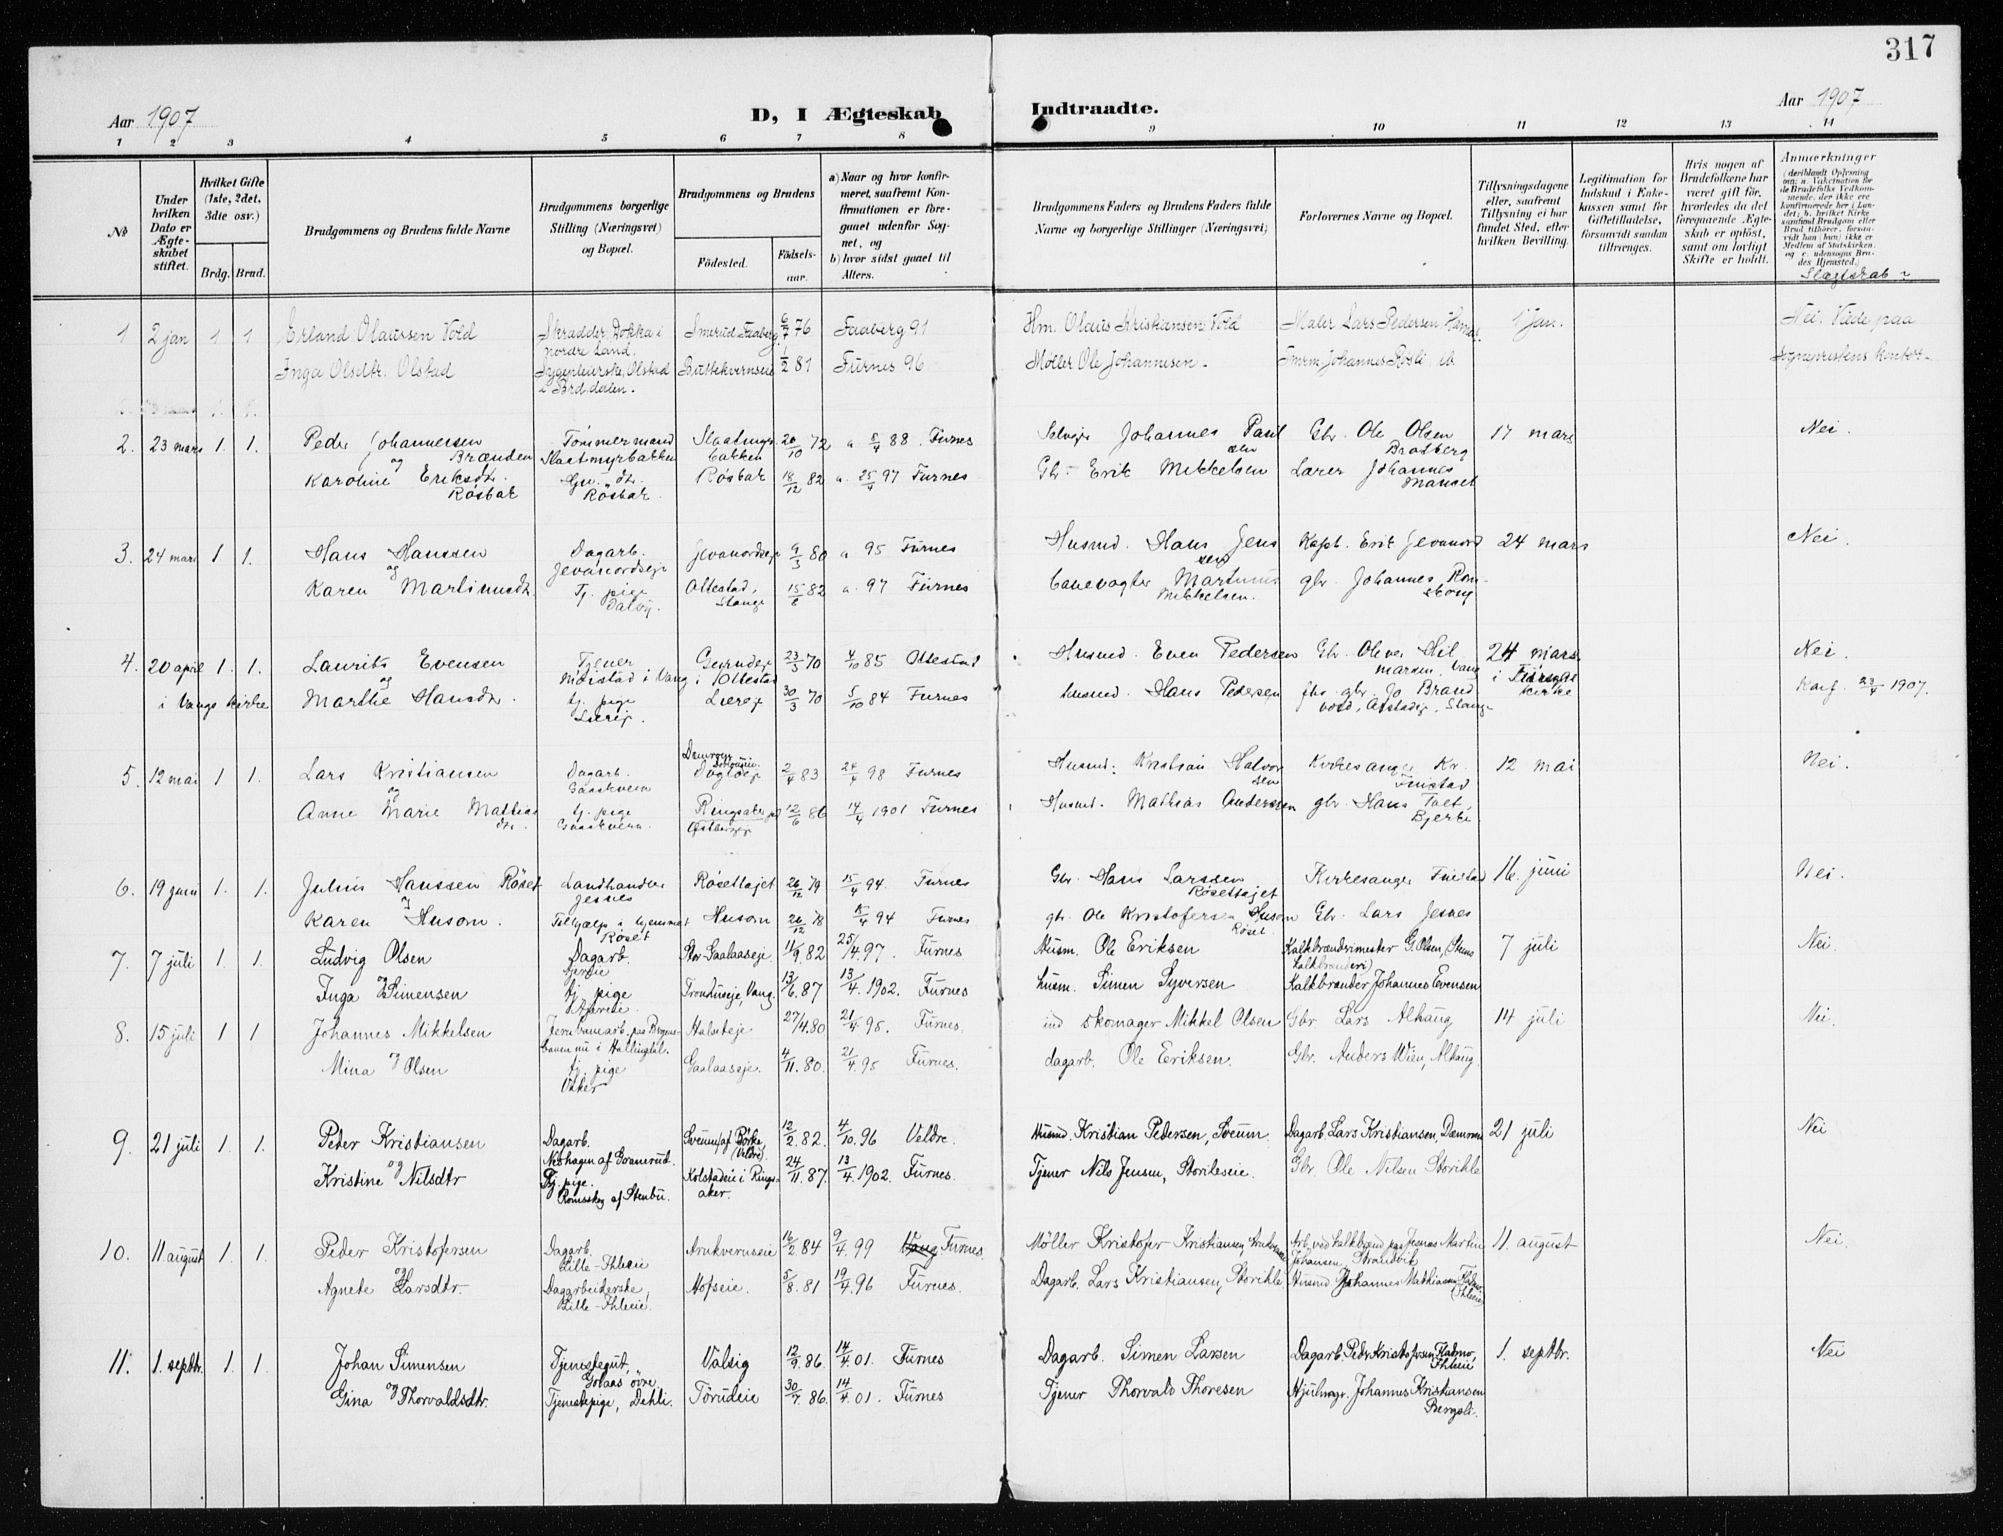 317
Aar 1907
D, I Ægteskab Indtraadte.
Aar 1907
1 2 3 4 5 6 7 8 9 10 11 12 13 14
No
Under hvilken Dato er Ægteskabet stiftet.
Hvilket Gifte (1ste, 2det, 3die osv.)
Brdg. Brud.
Brudgommens og Brudens fulde Navne
Brudgommens borgerlige Stilling (Næringsvei) og Bopæl.
Brudgommens og Brudens
Fødested. Fødselsaar.
a) Naar og hvor konfirmeret, saafremt Konfirmationen er foregaaet udenfor Sognet, og
b) hvor sidst gaaet til Alters.
Brudgommens Faders og Brudens Faders fulde Navne og borgerlige Stillinger (Næringsvei)
Forlovernes Navne og Bopæl.
Tillysningsdagene eller, saafremt Tillysning ei har fundet Sted, efter hvilken Bevilling.
Legitimation for Indskud i Enkekassen samt for Giftetilladelse, forsaavidt saadan tiltrænges.
Hvis nogen af Brudefolkene har været gift før, hvorledes da det foregaaende Ægteskab er opløst, samt om lovligt Skifte er holdt.
Anmerkninger
(deriblandt Oplysning om: a. Vakcination for de Brudefolks Vedkommende, der ikke ere konfirmerede her i Landet; b. hvilket Kirkesamfund Brudgom eller Brud tilhører, forsaavidt han (hun) ikke er Medlem af Statskirken, og c. udensogns Brudes Hjemsted.)
Slægtskab?
1 2 jan 1 1 Erland Olaussen Vold Skrædder, Dokka i nordre Land. Smerud Faaberg 6/7 76 Faaberg 91 Hm. Olaus Kristiansen Vold Maler Lars Pedersen Hamar 1 jan. Nei. Viede paa
Inga Olsdtr. Olstad Sygepleierske, Olstad i Brd.dalen. 1/2 81 Furnes 96 Møller Ole Johannesen. Johannes sognepræstens kontor.
2. 23 mars 1. 1. Peder Johannessen Brænden Tømmermand Slaatmyrbakken 20/10 72 a 8/4 88. Furnes Selveje Johannes Paulsen Gbr. Ole Olsen Brodberg 17 mars Nei.
og Karoline Eriksdtr. Røsbak Gu. dtr. Røsbak. Røsbak 18/12 82 a. 25/4 97 Furnes Gbr. Erik Mikkelsen Lærer Johannes
3. 24 mars 1. 1. Hans Hanssen Dagarb. Jevanordseje Jevanordseje 9/3 80 a 95 Furnes Husmd. Hans Jenssen Kapt. Erik Jevanord 24 mars Nei.
og Karen Martinusdtr. Tj. pige Dalby. Ottestad, Stange 15/8 82 a. 97 Furnes banevogter Martinus Mikkelsen. gbr. Johannes Romskoug
4. 20 april 1. 1. Laurits Evensen Tjener i Vang i Ottestad 23/3 70 4/10 85 Ottestad Husmd. Even Pedersen Gbr. Oliver Hilmarsen. Vang 24 mars Nei.
i Vangs kirke og Marthe Hansdtr. tj. pige Liereje. Liereje 30/3 70 5/10 84 Furnes husmd. Hans Pedersen fhv. gbr. Jo Brandvold, Stange i Furnes kirke Konf. 23/4 1907.
5. 12 mai 1. 1. Lars Kristiansen Dagarb. Gaaskvern 2/4 83 24/4 98 Furnes Husmd. Kristian Halvorsen Kirkesanger Kr. Finstad 12 mai Nei.
og Anne Marie Mathiasdtr. tj. pige Gaaskvern. Ringsaker 12/6 86 14/4 1901 Furnes Husmd. Mathias Anderssen gbr. Hans Toft, Bjerke
6. 19 juni 1. 1. Julius Hanssen Røset Landhandler Jesnes Røsettajet 26/12 79 15/4 94. Furnes Gbr. Hans Larssen Røsettajet Kirkesanger Finstad 16. juni Nei.
og Karen Husom. Tilhjælp i hjemmet Røset Husom 20/12 78 4 94 Furnes gbr. Ole Kristofersen Husom Røset. Gbr. Lars Jesnes
7. 7 juli 1. 1. Ludvig Olsen Dagarb. Str. Gaalaaseje. 11/9 82 25/4 97. Furnes Husm. Ole Eriksen Kalkbrænderimester G. Olsen, (Stens kalkbrænderi) 7 juli Nei.
og Inga Simensen tj. pige Tronhuseje, Vang. 13/6 87 13/4 1902. Furnes husm. Simen Syversen Kalkbrænder Johannes Evensen
8. 15 juli 1 1 Johannes Mikkelsen Jernbanearb. paa Bergensbanen nu i Hallingdal. Halseteje 27/4.80 21/4 95. Furnes. ind skomager Mikkel Olsen Gbr Lars Alhaug 14 juli Nei.
og Mina Olsen tj. pige Vaker Gaalaaseje. 4/11.80. 21/4.95 Furnes. dagarb. Ole Eriksen. Gbr. Anders Wien, Alhaug.
9. 21 juli 1. 1. Peder Kristiansen Dagarb. Neshagen af Granerud. Sveum af Børke (Veldre). 12/2 82. 4/10 96 Veldre. Husmd. Kristian Pedersen, Sveum. Dagarb. Lars Kristiansen, Dæmroen 21 juli Nei
og Kristine Nilsdtr Tj. pige. Romsskog af Stenbu. Kolstadeie i Ringsaker. 24/11 87. 13/4 1902. Furnes. Tjener Nils Jensen, Storihleeie. Gbr. Ole Nilsen Storihle
10. 11 august 1. 1. Peder Kristofersen Dagarb. Lille-Ihleeie Arukverneie 16/2 84 9/4 99 Vang Furnes. Møller Kristofer Kristiansen, Arb. ved kalkbrænd. paa Jesnes Martin Johansen, Strandvik 11. august Nei.
og Agnete Larsdtr. Dagarbeiderske, Lille-Ihleeie. Hofseie. 5/8.81 19/4.96 Furnes. Dagarb. Lars Kristiansen, Storihle Husmd Johannes Mathiassen (Ihleeie)
11. 1. septbr. 1. 1. Johan Simensen Tjenestegut, Golaas øvre Valsig 12/9.86. 14/4.01. Furnes Dagarb. Simen Larsen Dagarb. Peder Kristofersen Fladmo, Ihleeie 1. septbr. Nei
og Gina Thorvaldsdtr. Tjenestepige, Dehli. Torudeie 30/7.86. 14/4.01. Furnes Tjener Thorvald Thoresen Hjulmager. Johannes Kristiansen Bergsli.